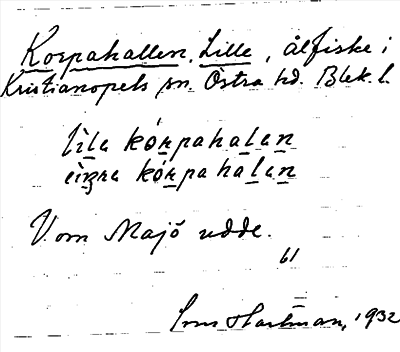 Korpahallen, Lille, ålfiske i
Kristianopels sn. Östra hd. Blek. l.
lìla kórpahalan
eizra kórpahalan
V om Majö udde.
61
Hartman, 1932